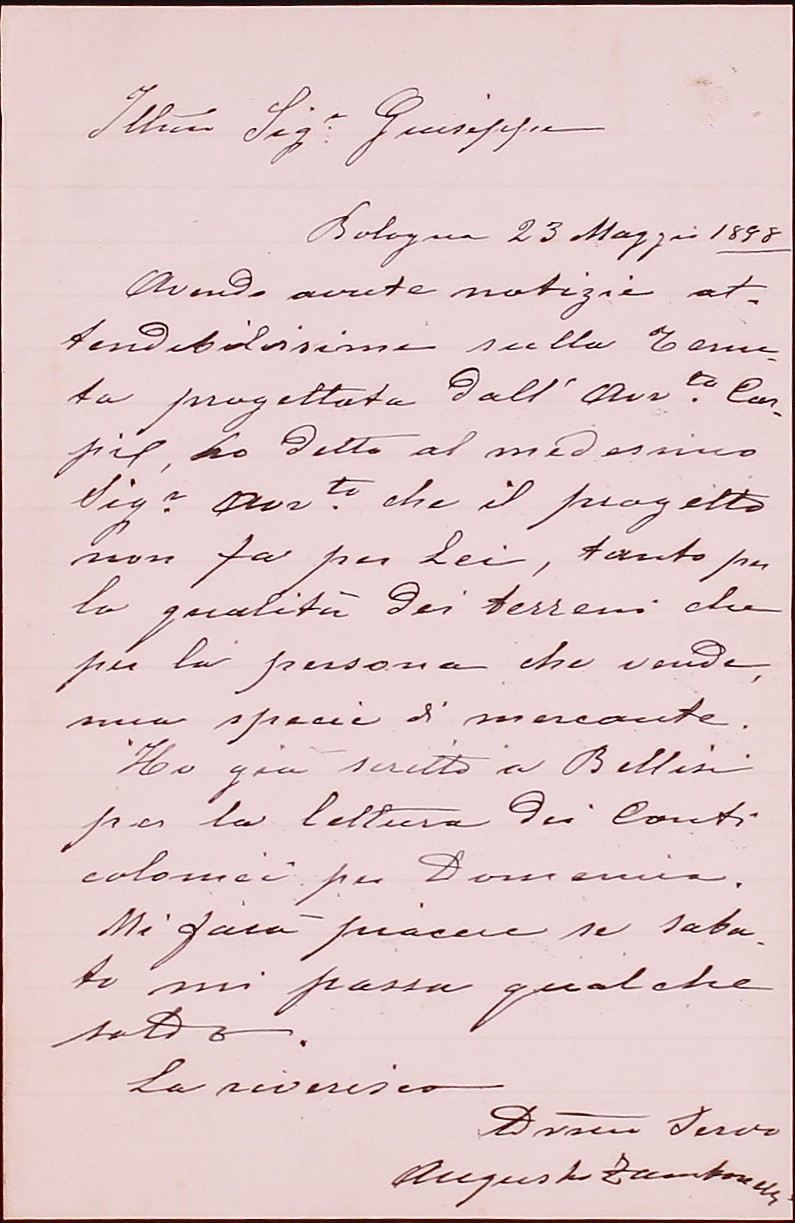 Illmo Sigr. Giuseppe
Bologna 23 Maggio 1898
Avendo avute notizie at-
tendibilissime sulla Tenu-
ta progettata dall' Avvto. Car-
pi, ho detto al medesimo
Sigr. Avvto. che il progetto
non fa per Lei, tanto per
la qualità dei terreni che
per la persona che vende,
una specie di mercante.
Ho già scritto a Bellisi
per la lettura dei Conti
colonici per Domenica.
Mi farà piacere se saba-
to mi passa qualche
soldo.
La riverisco
Devmo Servo
Augusto